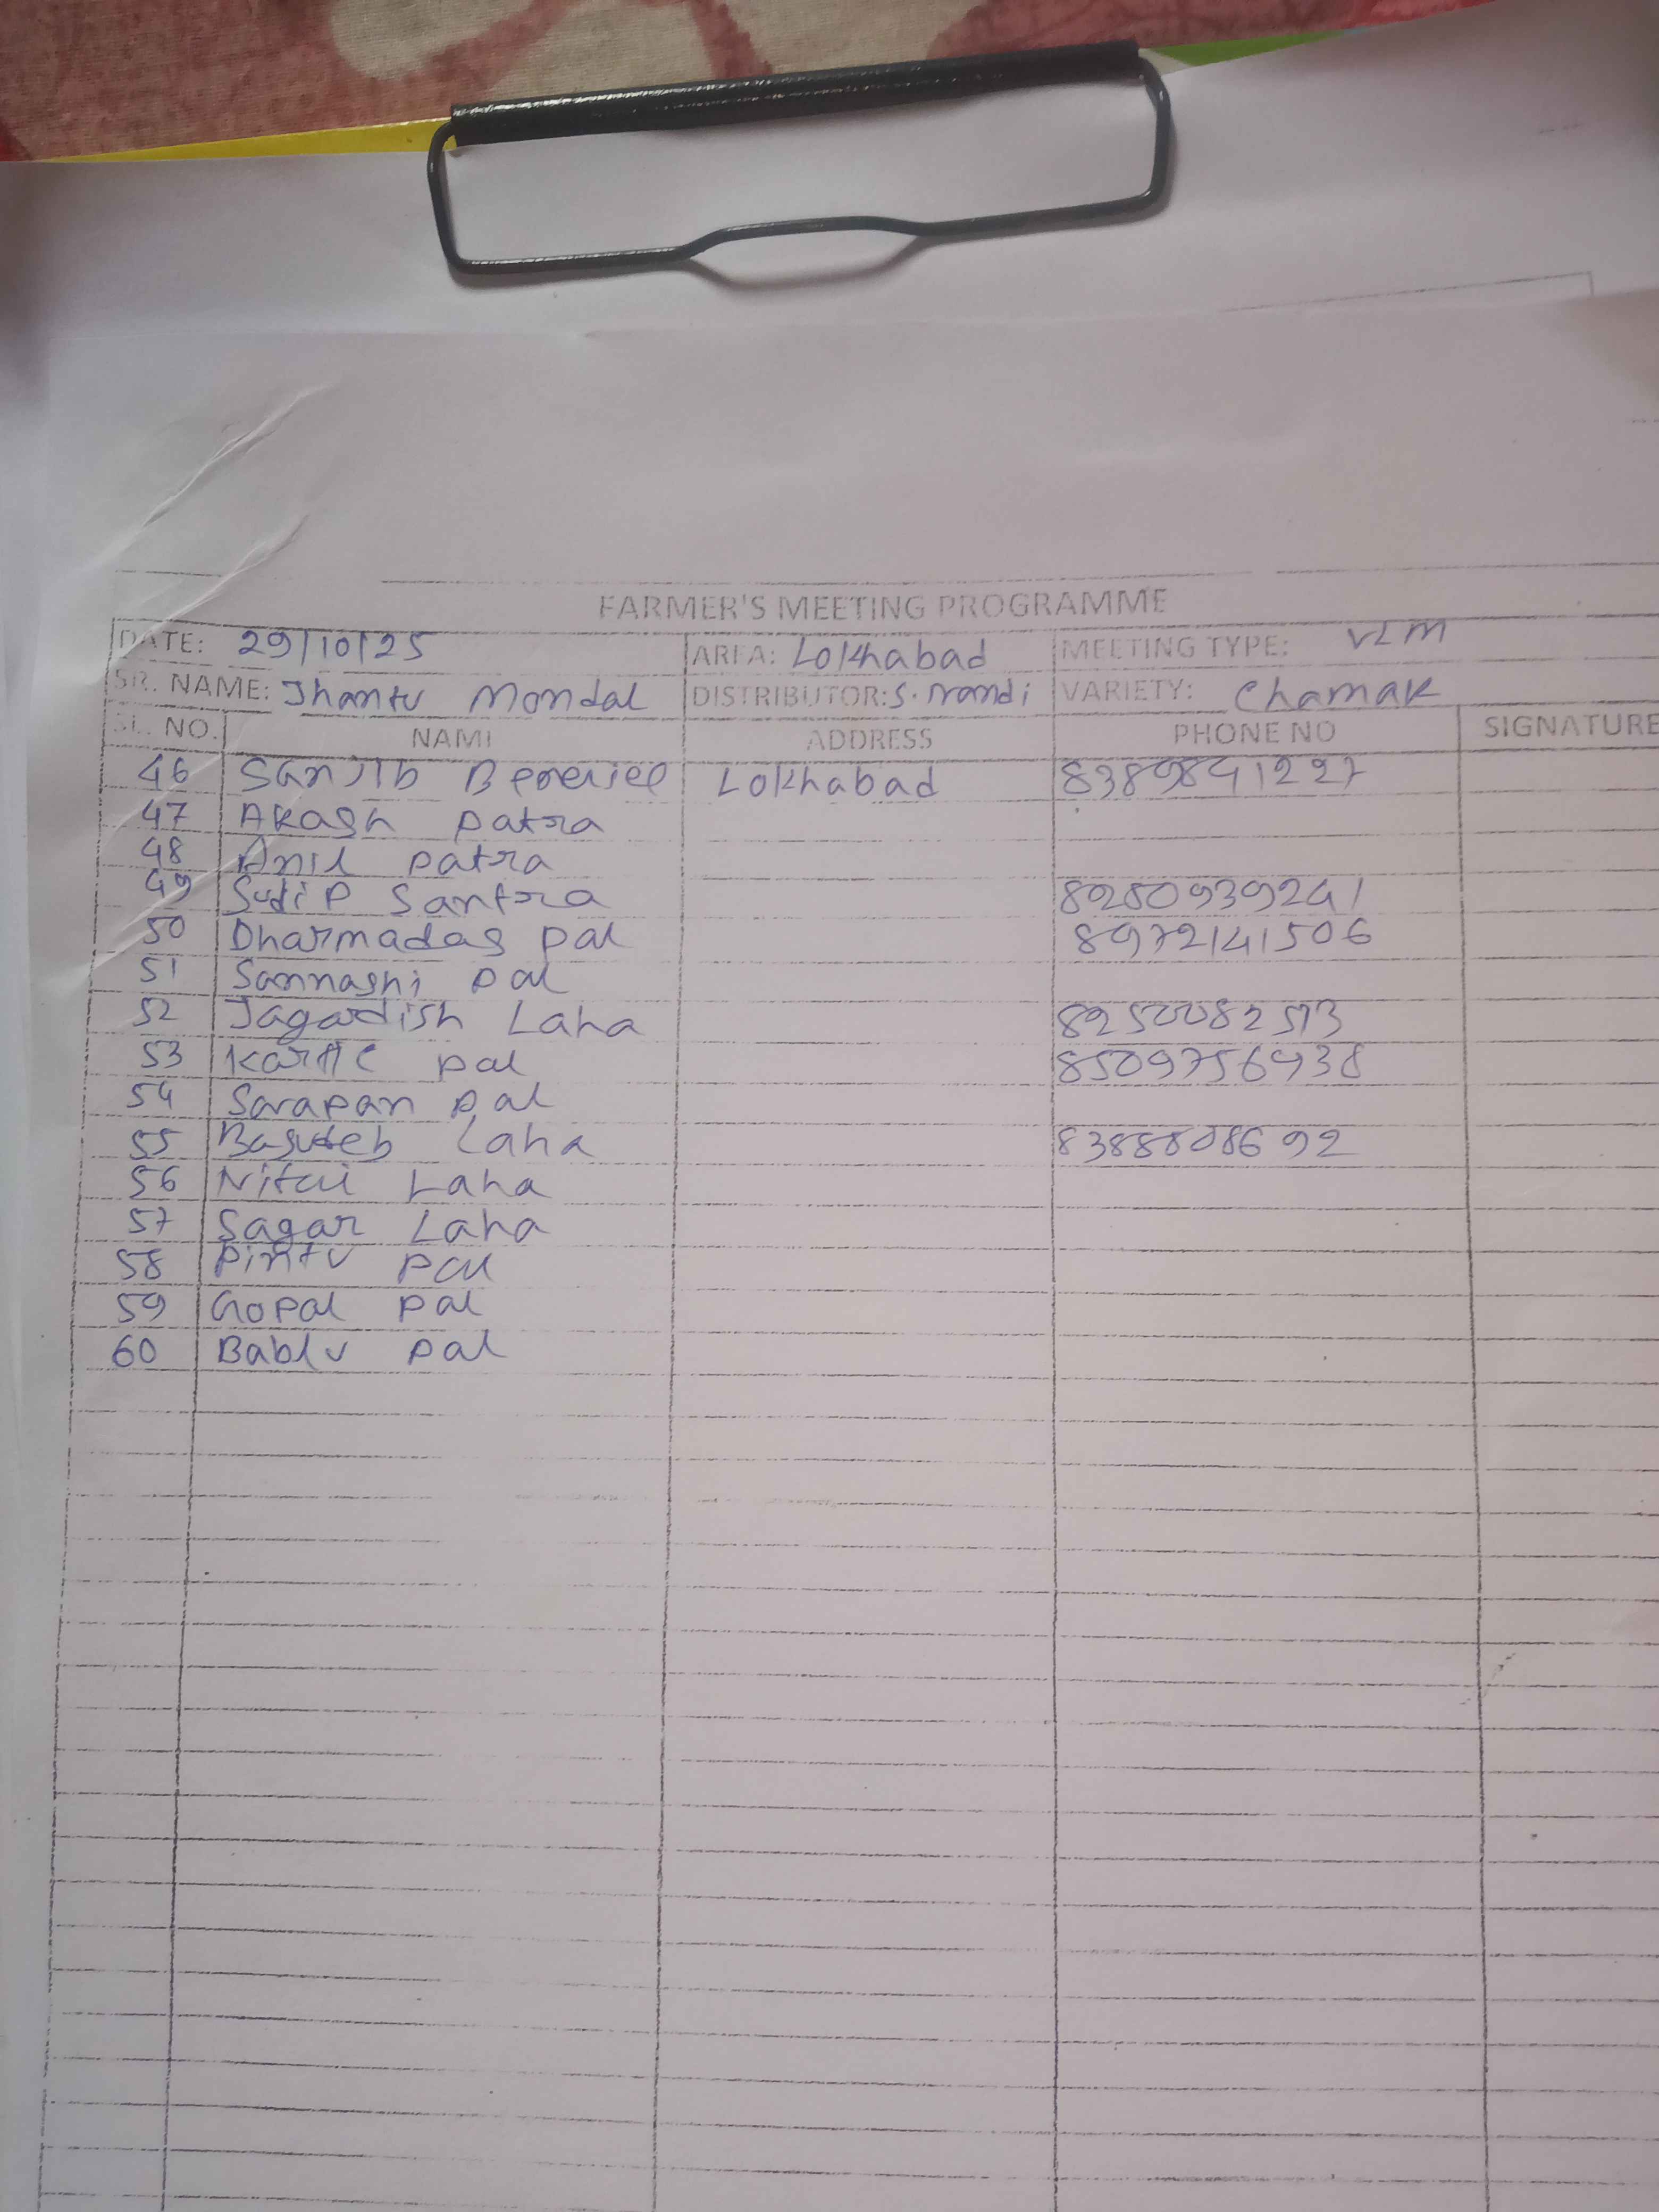 FARMER'S MEETING PROGRAMME
DATE: 29/10/25 AREA: Lokhabad MEETING TYPE: VLM
SR. NAME: Jhantu Mondal DISTRIBUTOR: S. Nandi VARIETY: Chamak
SL. NO. NAME ADDRESS PHONE NO SIGNATURE
46 Sanjib Lokhabad 8389841227
47 Akash patra
48 Anil patra
49 Sudip Santra 8250939241
50 Dharmadas pal 8972141506
51 Sannashi pal
52 Jagadish Laha
53 Kartic pal 8509756938
54 Sarapan pal
55 Basudeb Laha
56 Nitai Laha
57 Sagar Laha
58 Pintu pal
59 Gopal pal
60 Bablu pal